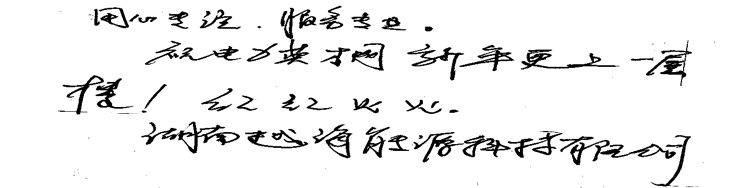 用心专注,服务专业。
祝电力英才网新年更上一层
楼!红红火火。
湖南越海能源科技有限公司